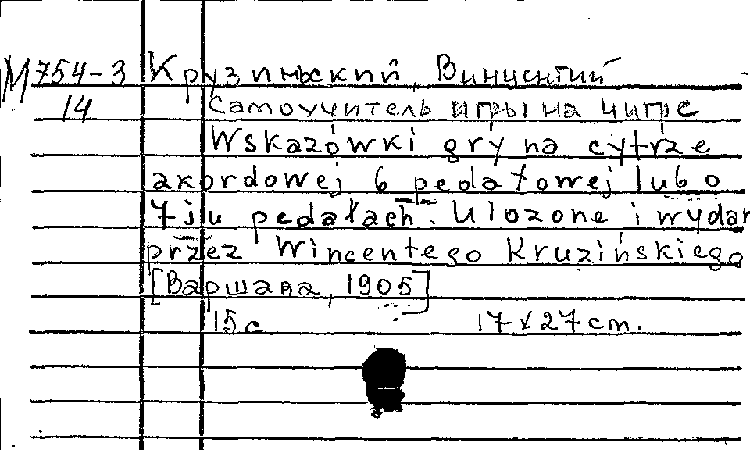 М754-3 Крузиньский, Винцентий
14 Самоучитель игры на читре
Wskazówki gry na cytrze
akordowej 6 pedałowej lub o
7iu pedałach. Ulozone i wydan
przez Wincentego Kruzińskiego
[Варшава, 1905]
15 с 17x27 cm.